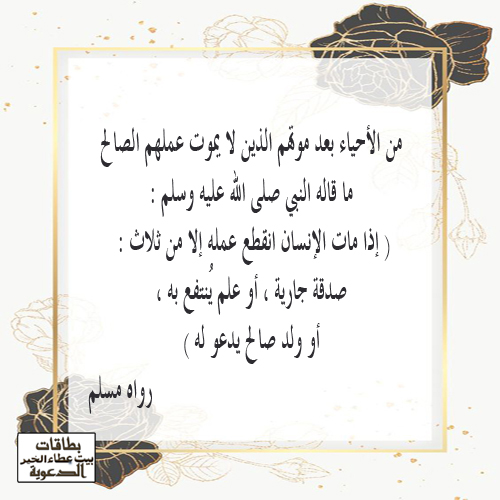 من الأحياء بعد موتهم الذين لا يموت عملهم الصالح
ما قاله النبي صلى الله عليه وسلم :
( إذا مات الإنسان انقطع عمله إلا من ثلاث :
صدقة جارية ، أو علم يُنتفع به ،
أو ولد صالح يدعو له )
رواه مسلم
بطاقات
بيت عطاء الخير
الدعوية